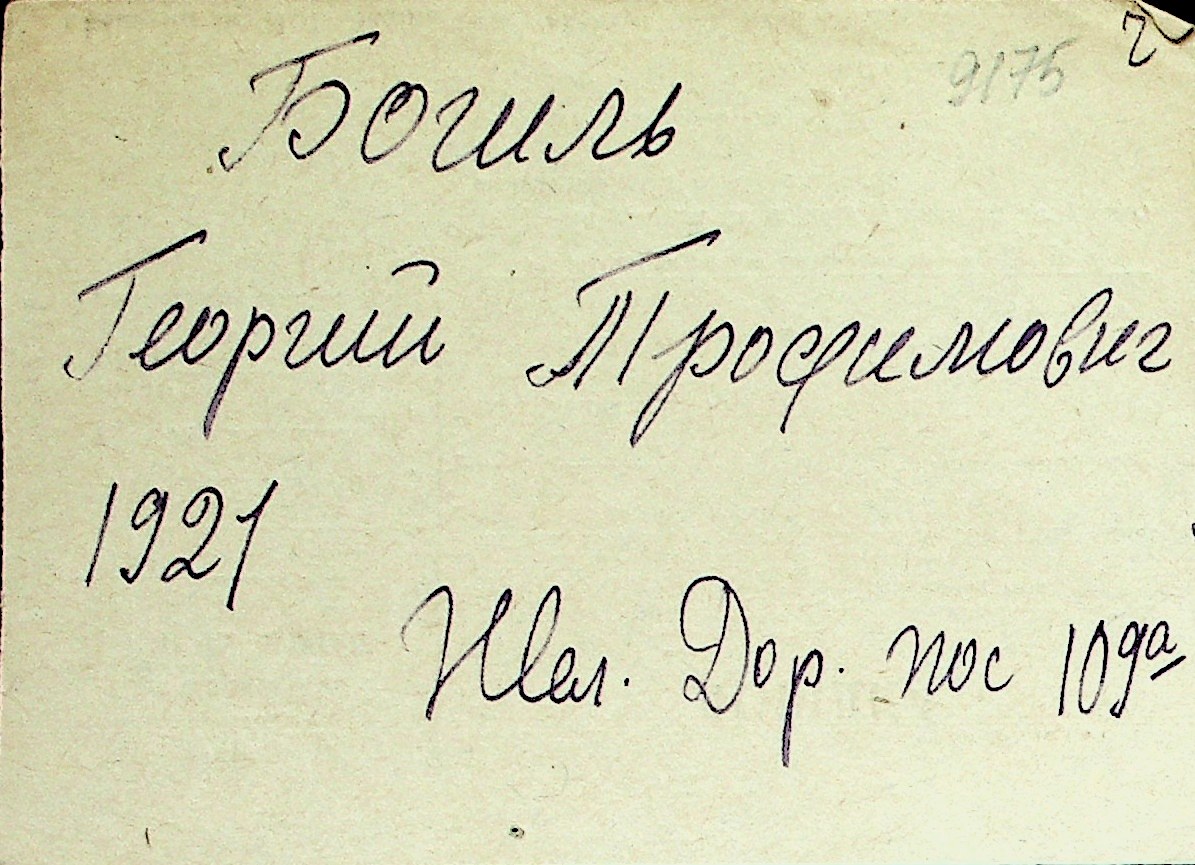 9175
Богиль
Георгий Трофимович
1921
Жел. Дор. пос 109а